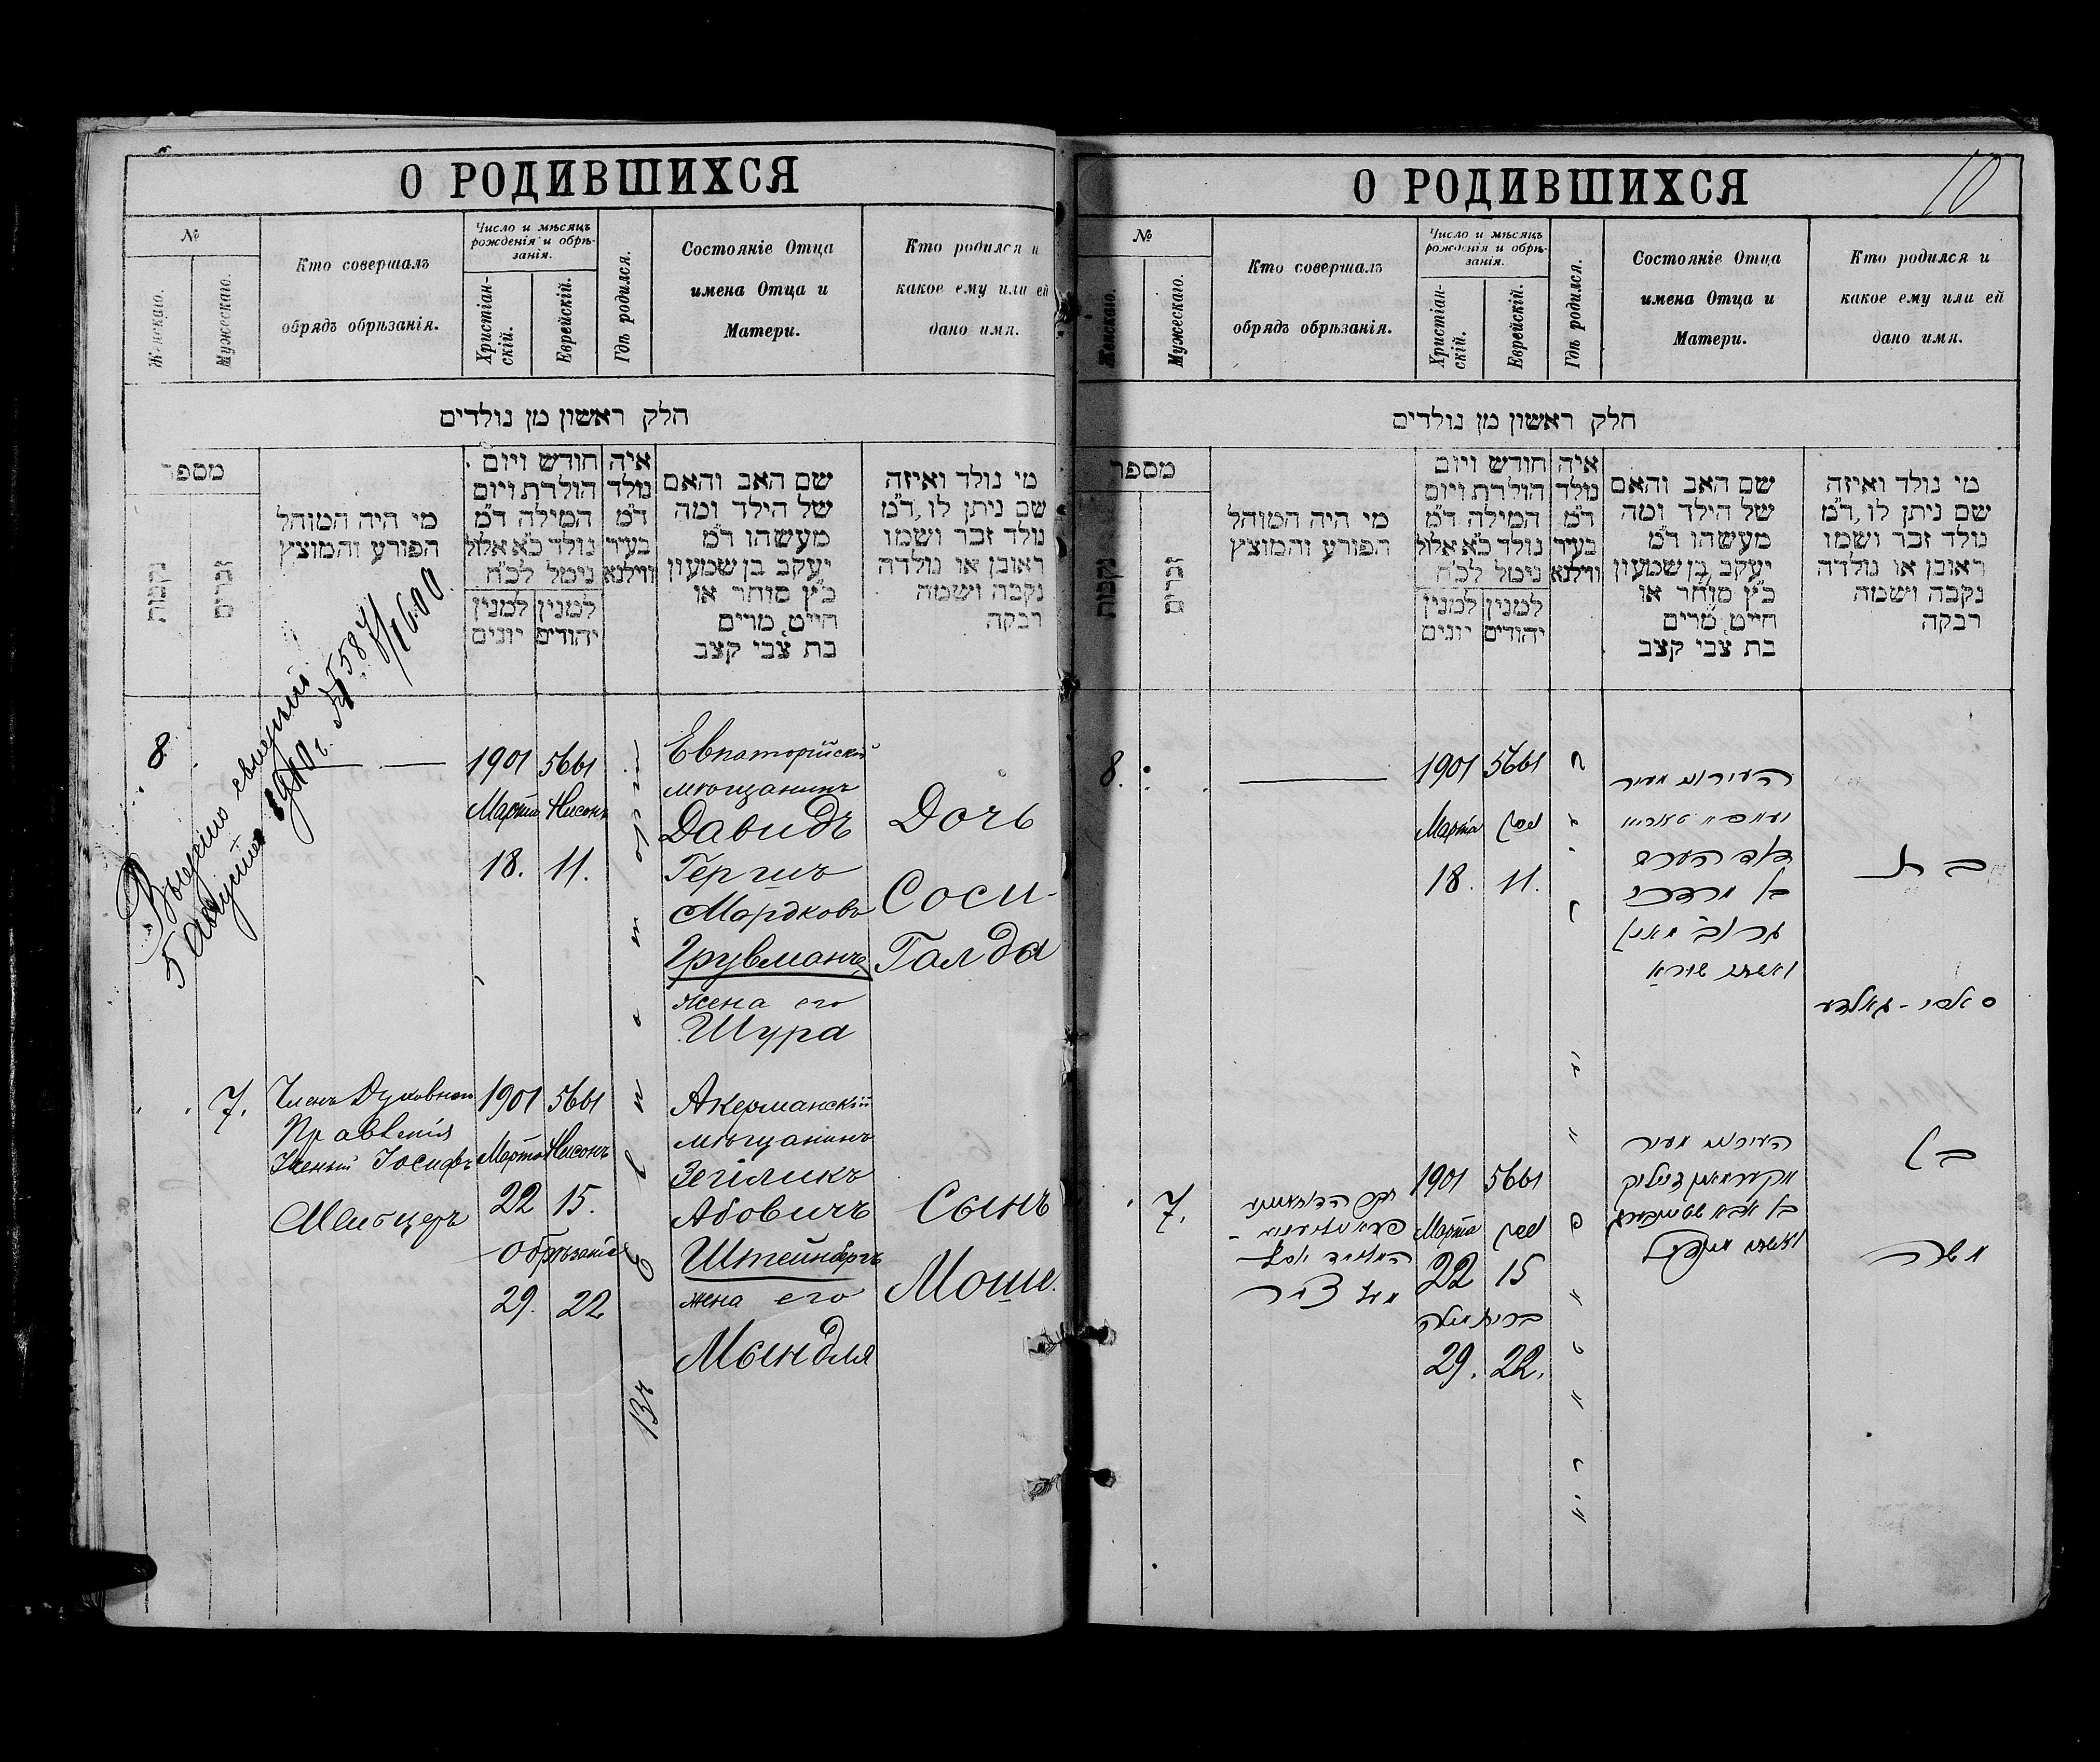 О РОДИВШИХСЯ
№
Женскаго.
Мужескаго.
Кто совершалъ
обрядъ обрѣзанія.
Число и мѣсяцъ
рожденія и обрѣ-
занія.
Христіан-
скій.
Еврейскій.
Гдѣ родился.
Состояніе Отца
имена Отца и
Матери.
Кто родился и
какое ему или ей
дано имя.
חלק ראשון מן נולדים
מספר
נקבות
זכרים
מי היה המוהל
הפורע והמוצץ
חודש ויום
הולדת ויום
המילה ד״מ
נולד כ״א אלול
נימל לכ״ח
למנין
יונים
למנין
יהודים
איה
נולד
ד״מ
בעיר
ווילנא
שם האב והאם
של הילד ומה
מעשהו ד״מ
יעקב בן שמעון
כ״ץ סוחר או
חייט, מרים
בת צבי קצב
מי נולד ואיזה
שם ניתן לו, ד״מ
נולד זכר ושמו
ראובן או נולדה
נקבה ושמה
רבקה
5 Августа 1910 г. №
8
1901
Марта
18.
5661
Нисонъ
11.
Въ Евпаторіи
Евпаторійскій
мѣщанинъ
Давидъ
Гершъ
Мордковъ
Грубманъ
жена его
Шура
Дочь
Соси-
Галда
7.
Членъ Духовнаго
Правленія
Ученый Іосифъ
1901
Марта
22
5661
Нисонъ
15.
Обрѣзаніе
29. 22
Акерманскій
мѣщанинъ
Зегіликъ
Абовичъ
Штейнбергъ
жена его
Мындля
Сынъ
Моше.
О РОДИВШИХСЯ
10
№
Женскаго.
Мужескаго.
Кто совершалъ
обрядъ обрѣзанія.
Число и мѣсяцъ
рожденія и обрѣ-
занія.
Христіан-
скій.
Еврейскій.
Гдѣ родился.
Состояніе Отца
имена Отца и
Матери.
Кто родился и
какое ему или ей
дано имя.
חלק ראשון מן נולדים
מספר
נקבות
זכרים
מי היה המוהל
הפורע והמוצץ
חודש ויום
הולדת ויום
המילה ד״מ
נולד כ״א אלול
נימל לכ״ח
למנין
יונים
למנין
יהודים
איה
נולד
ד״מ
בעיר
ווילנא
שם האב והאם
של הילד ומה
מעשהו ד״מ
יעקב בן שמעון
כ״ץ סוחר או
חייט, מרים
בת צבי קצב
מי נולד ואיזה
שם ניתן לו, ד״מ
נולד זכר ושמו
ראובן או נולדה
נקבה ושמה
רבקה
8.
1901
Марта
18.
5661
ניסן
11.
דוד הערש
בן מרדכי
גרובמאן
ואשתו שורא
בת
סאסי-גאלדע
7.
1901
Марта
22
5661
ניסן
15
ברית מילה
29. 22.
בן
משה